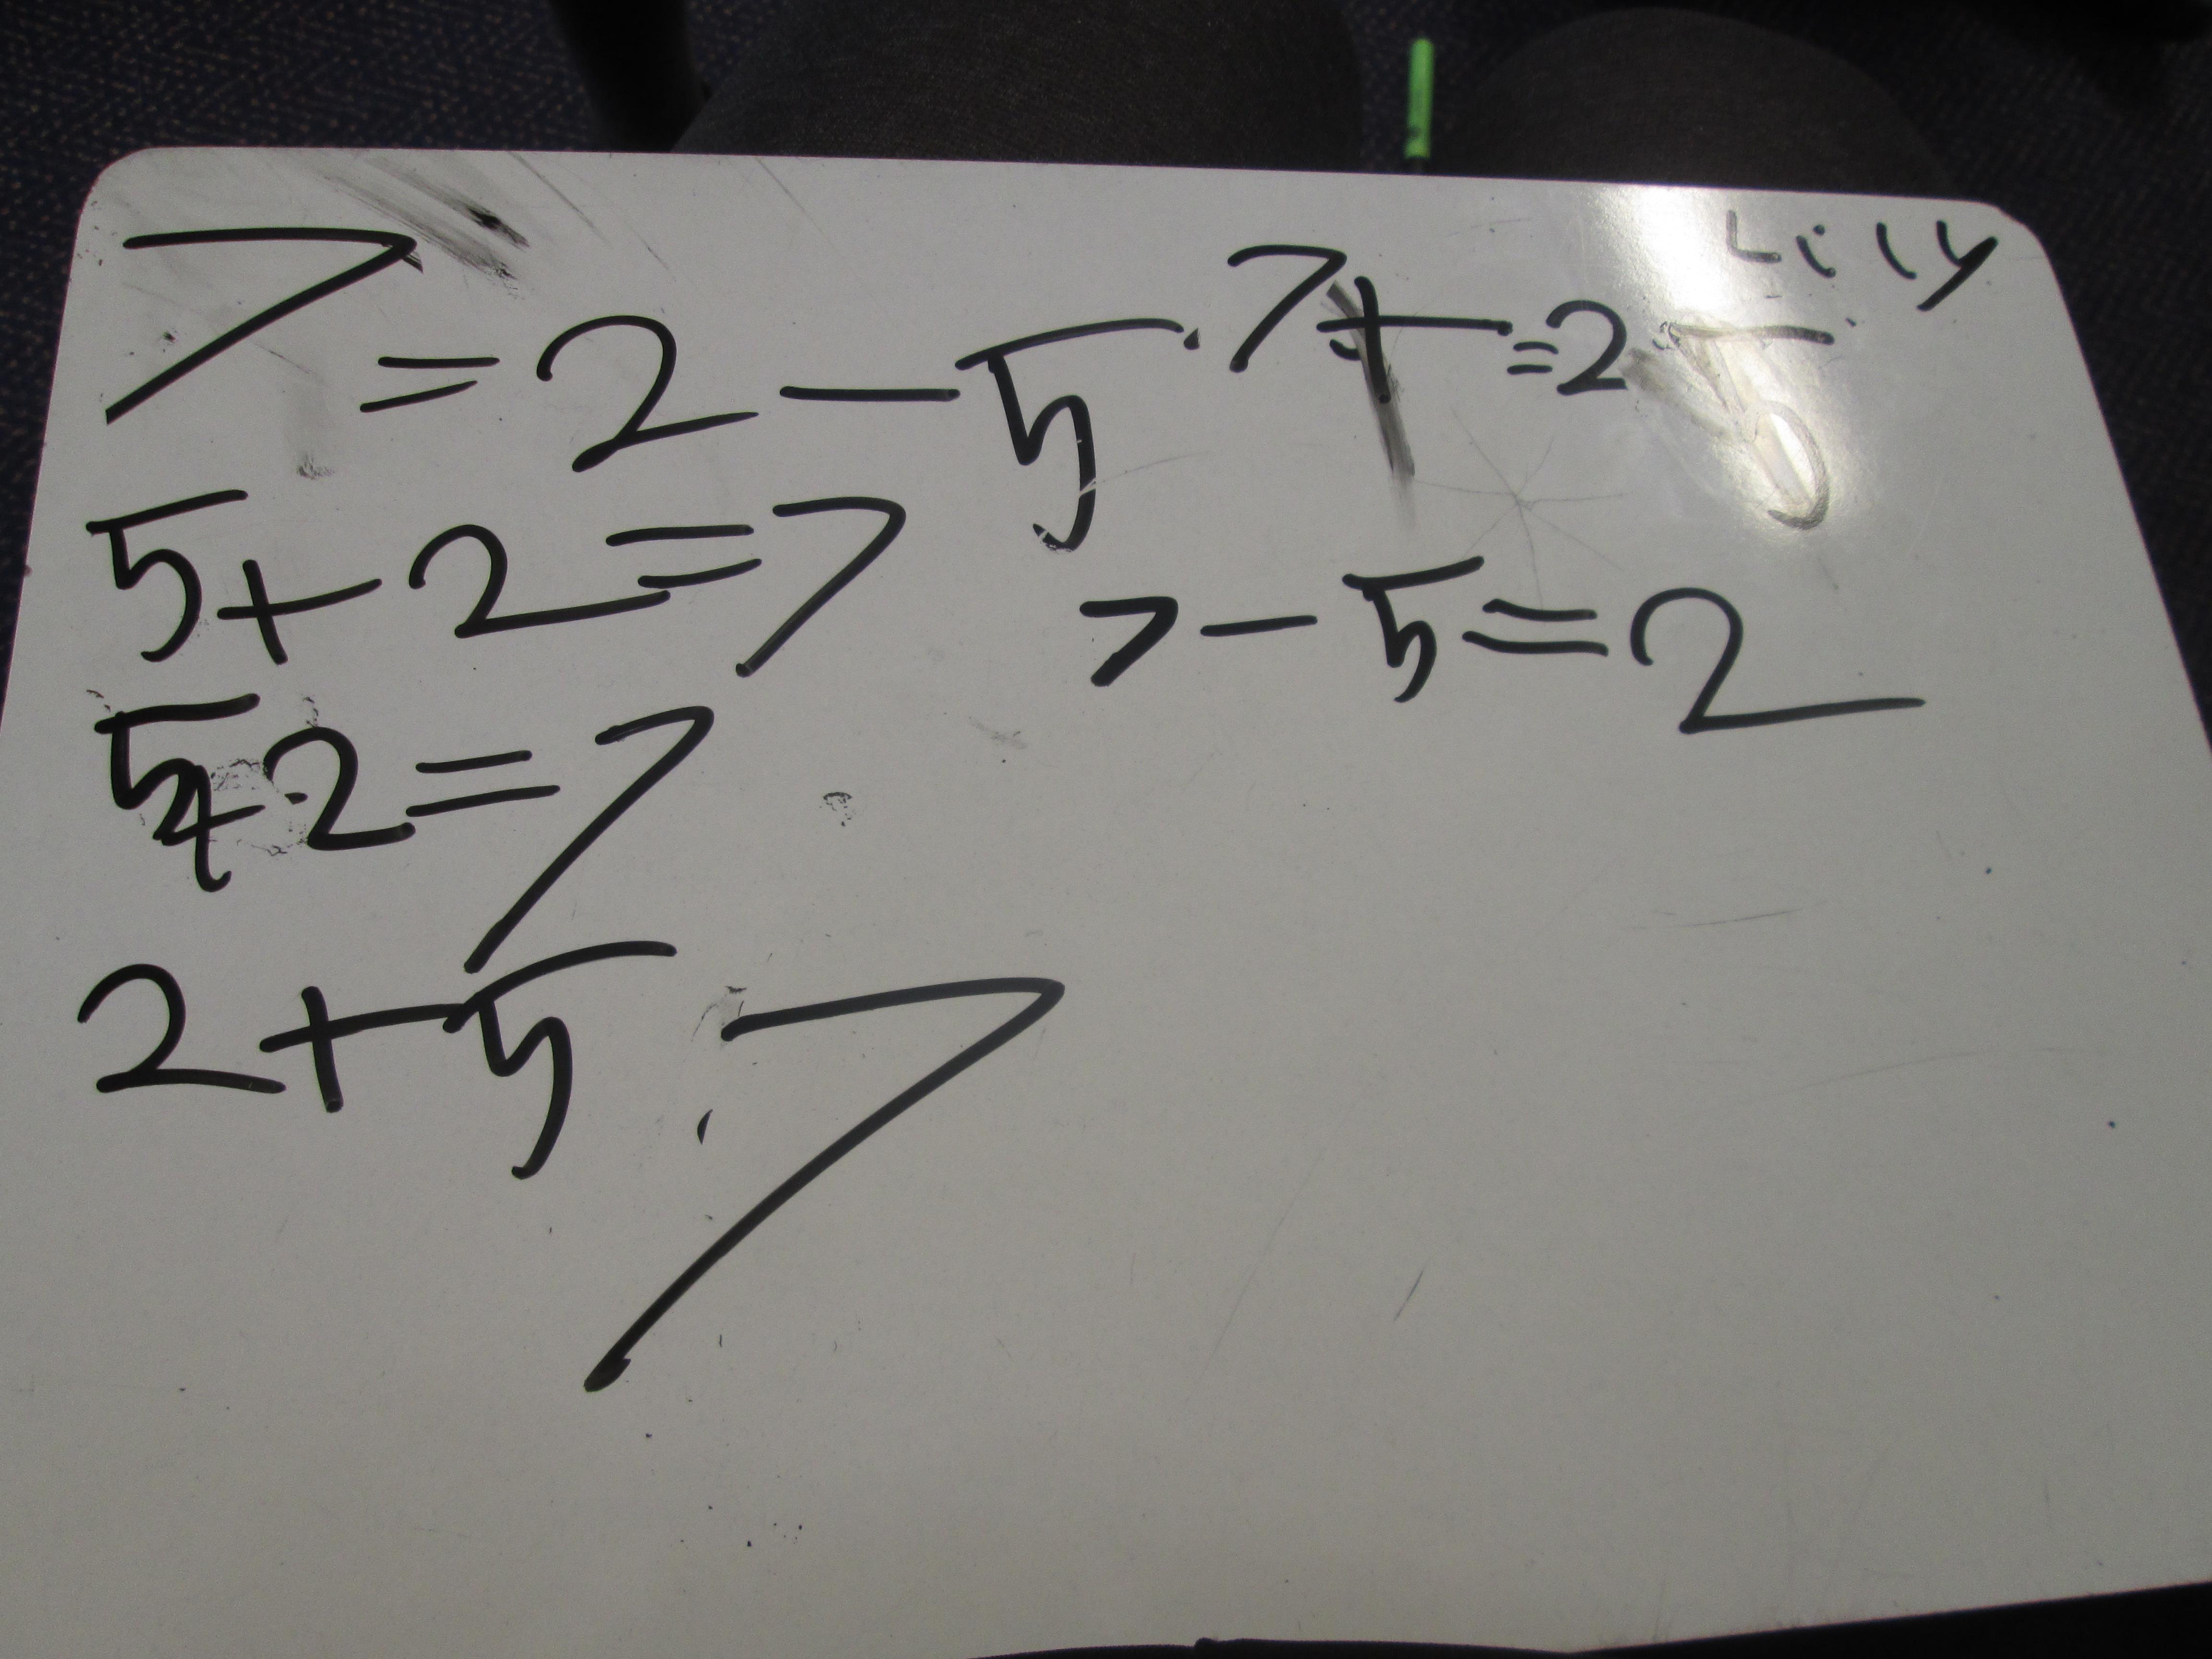 Lily
7 = 2 - 5
7 + = 2 5
5 + 2 = 7
7 - 5 = 2
5 + 2 = 7
2 + 5 7